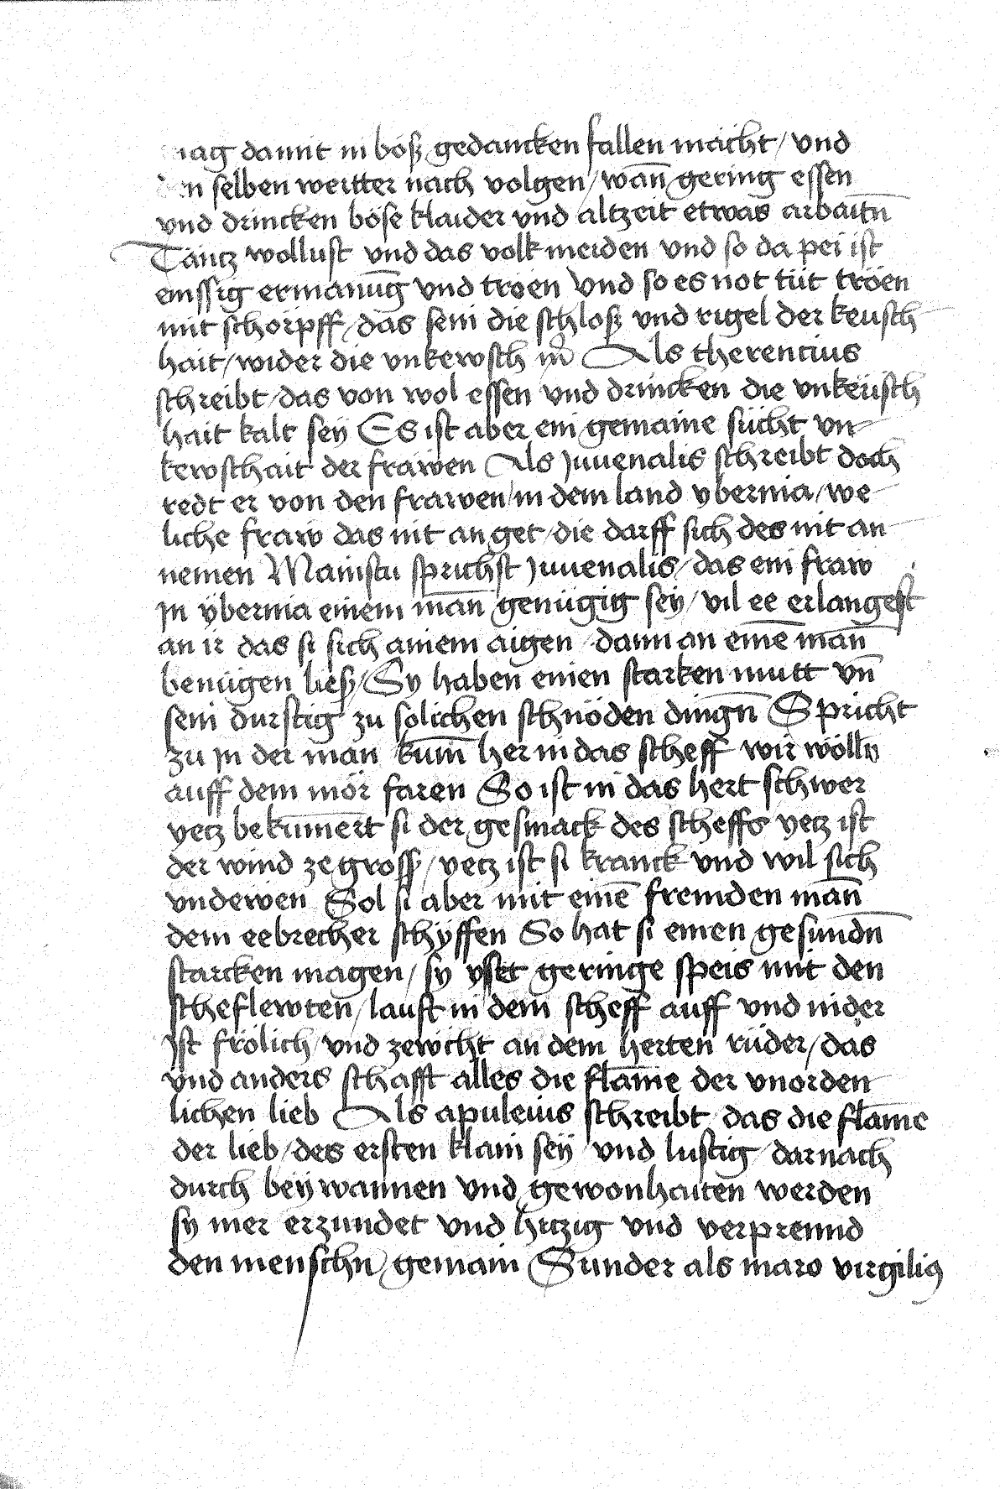 mag damit in böß gedancken fallen macht / vnd
den selben wertter nach volgen / wan̄ gering essen
vnd drincken böse klaider vnd altzeit etwas arbaitn̄
Täntz wollust vnd das volk meiden vnd so da pei ist
emssig ermanūg vnd tröen Vnd so es not tüt tröen
mit schörpff / das sein die schloß vnd rigel der keusch-
hait / wider die vnkewsch Als therencius
schreibt / das von wol essen vnd drincken die vnkeüsch
hait kalt seÿ Es ist aber ein gemaine sücht vn-
kewschait der frawen Als Juuenalis schreibt doch
redt er von den frawen in dem land ybernia / we-
liche fraw das nit an get / die darff sich des nit an-
nemen Mainstu sprichst Juuenalis / das ein fraw
Jn ÿbernia einem man̄ genügig seÿ / vil ee erlangest
an ir das si sich ainem aigen / dann an eine̅ man̄
benügen ließ / Sy haben einen starken mutt vn̄
sein durstig zu solichen schnöden dingn̄ Spricht
zu Jn der man kum̄ her in das scheff wir wölln̄
auff dem mör faren So ist in das hert schwer
yetz bekūmert si der gesmack des scheffs yetz ist
der wind ze gross / yetz ist si kranck vnd wil sich
vndewen Sol si aber mit eine̅ fremden man̄
dem eebrecher schÿffen So hat si einen gesundn̄
starcken magen / sy ysset geringe speis mit den
scheflewten / lauft in dem scheff auff vnd nider
Jst frölich / vnd zewcht an dem herten rüder / das
vnd anders schafft alles die flam̄e der vnorden-
lichen lieb Als apuleius schreibt / das die flam̄e
der lieb / des ersten klain seÿ / vnd lustig / darnach
durch beÿwannen vnd gewonhaiten werden
sy mer erzundet vnd hitzig vnd verprennd
den menschn̄ gemain Sunder als maro virgilius